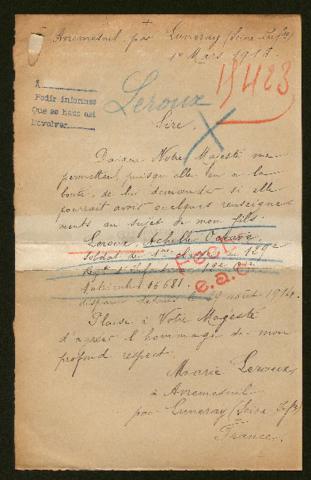 Avremesnil par Luneray (Seine Infre)
1er Mars 1918.
15423
A
Pedir informes
Que se hace así
Devolver
Leroux
Sire,
Daigne Votre Majesté me
permettre, puisqu'elle en a la
bonté, de lui demander si elle
pourrait avoir quelques renseigne
ments au sujet de mon fils.
Leroux, Achille Octave
Soldat de 1ère classe au 129e
Regt d'Infanterie 12e Cie
Matricule 06681.
disparu depuis le 29 août 1914.
Plaise à Votre Majesté
d'agréer l'hommage de mon
profond respect.
Marie Leroux
à Avremesnil
par Luneray (Seine Infre)
France.